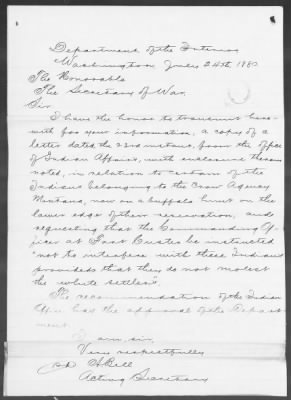 Department of the Interior
Washington July 24th, 1880
The Honorable
The Secretary of War
Sir.
I have the honor to transmit here-
with for your information, a copy of a
letter dated the 22nd instant, from the office
of Indian Affairs, with enclosure therein
noted, in relation to certain of the
Indians belonging to the Crow Agency
Montana, now on a buffalo hunt on the
lower edge of their reservation, and
requesting that the Commanding Of-
ficer at Fort Custer be instructed
"not to interfere with these Indians
provided that they do not molest
the white settlers".
The recommendation of the Indian
Office has the approval of the Depart-
ment.
I am, sir,
Very respectfully
A Bell
Acting Secretary